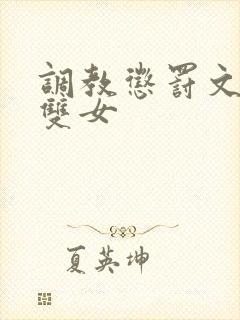 調教懲罰文
雙女
夏英坤